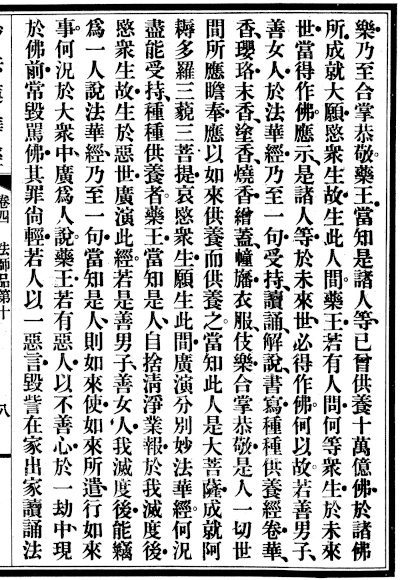 樂、乃至合掌恭敬。藥王、當知是諸人等、已曾供養十萬億佛、於諸佛
所、成就大願、愍衆生故、生此人間。藥王、若有人問、何等衆生、於未來
世當得作佛。應示、是諸人等、於未來世、必得作佛。何以故。若善男子、
善女人、於法華經、乃至一句、受持、讀誦、解說、書寫、種種供養經卷、華、
香、瓔珞、末香、塗香、燒香、繒蓋、幢旛、衣服、伎樂、合掌恭敬。是人一切世
間所應瞻奉、應以如來供養而供養之。當知此人是大菩薩、成就阿
耨多羅三藐三菩提、哀愍衆生、願生此間、廣演分別妙法華經。何況
盡能受持、種種供養者。藥王、當知是人、自捨淸淨業報、於我滅度後、
愍衆生故、生於惡世、廣演此經。若是善男子、善女人、我滅度後、能竊
爲一人說法華經、乃至一句、當知是人、則如來使、如來所遣、行如來
事。何況於大衆中、廣爲人說。藥王、若有惡人、以不善心、於一劫中、現
於佛前、常毀罵佛、其罪尙輕、若人以一惡言、毀呰在家出家讀誦法
卷四 法師品第十 八